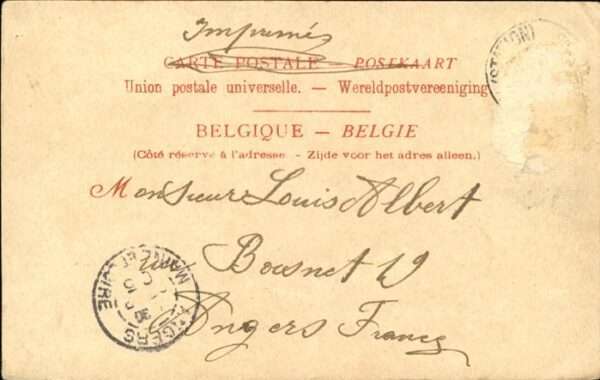 Imprimés
CARTE POSTALE — POSTKAART
Union postale universelle. — Wereldpostvereeniging
BELGIQUE — BELGIE
(Côté réservé à l'adresse. - Zijde voor het adres alleen.)
Monsieur Louis Albert
rue Bosnet 19
Angers France
(STATION)
ANGERS
MAINE ET LOIRE